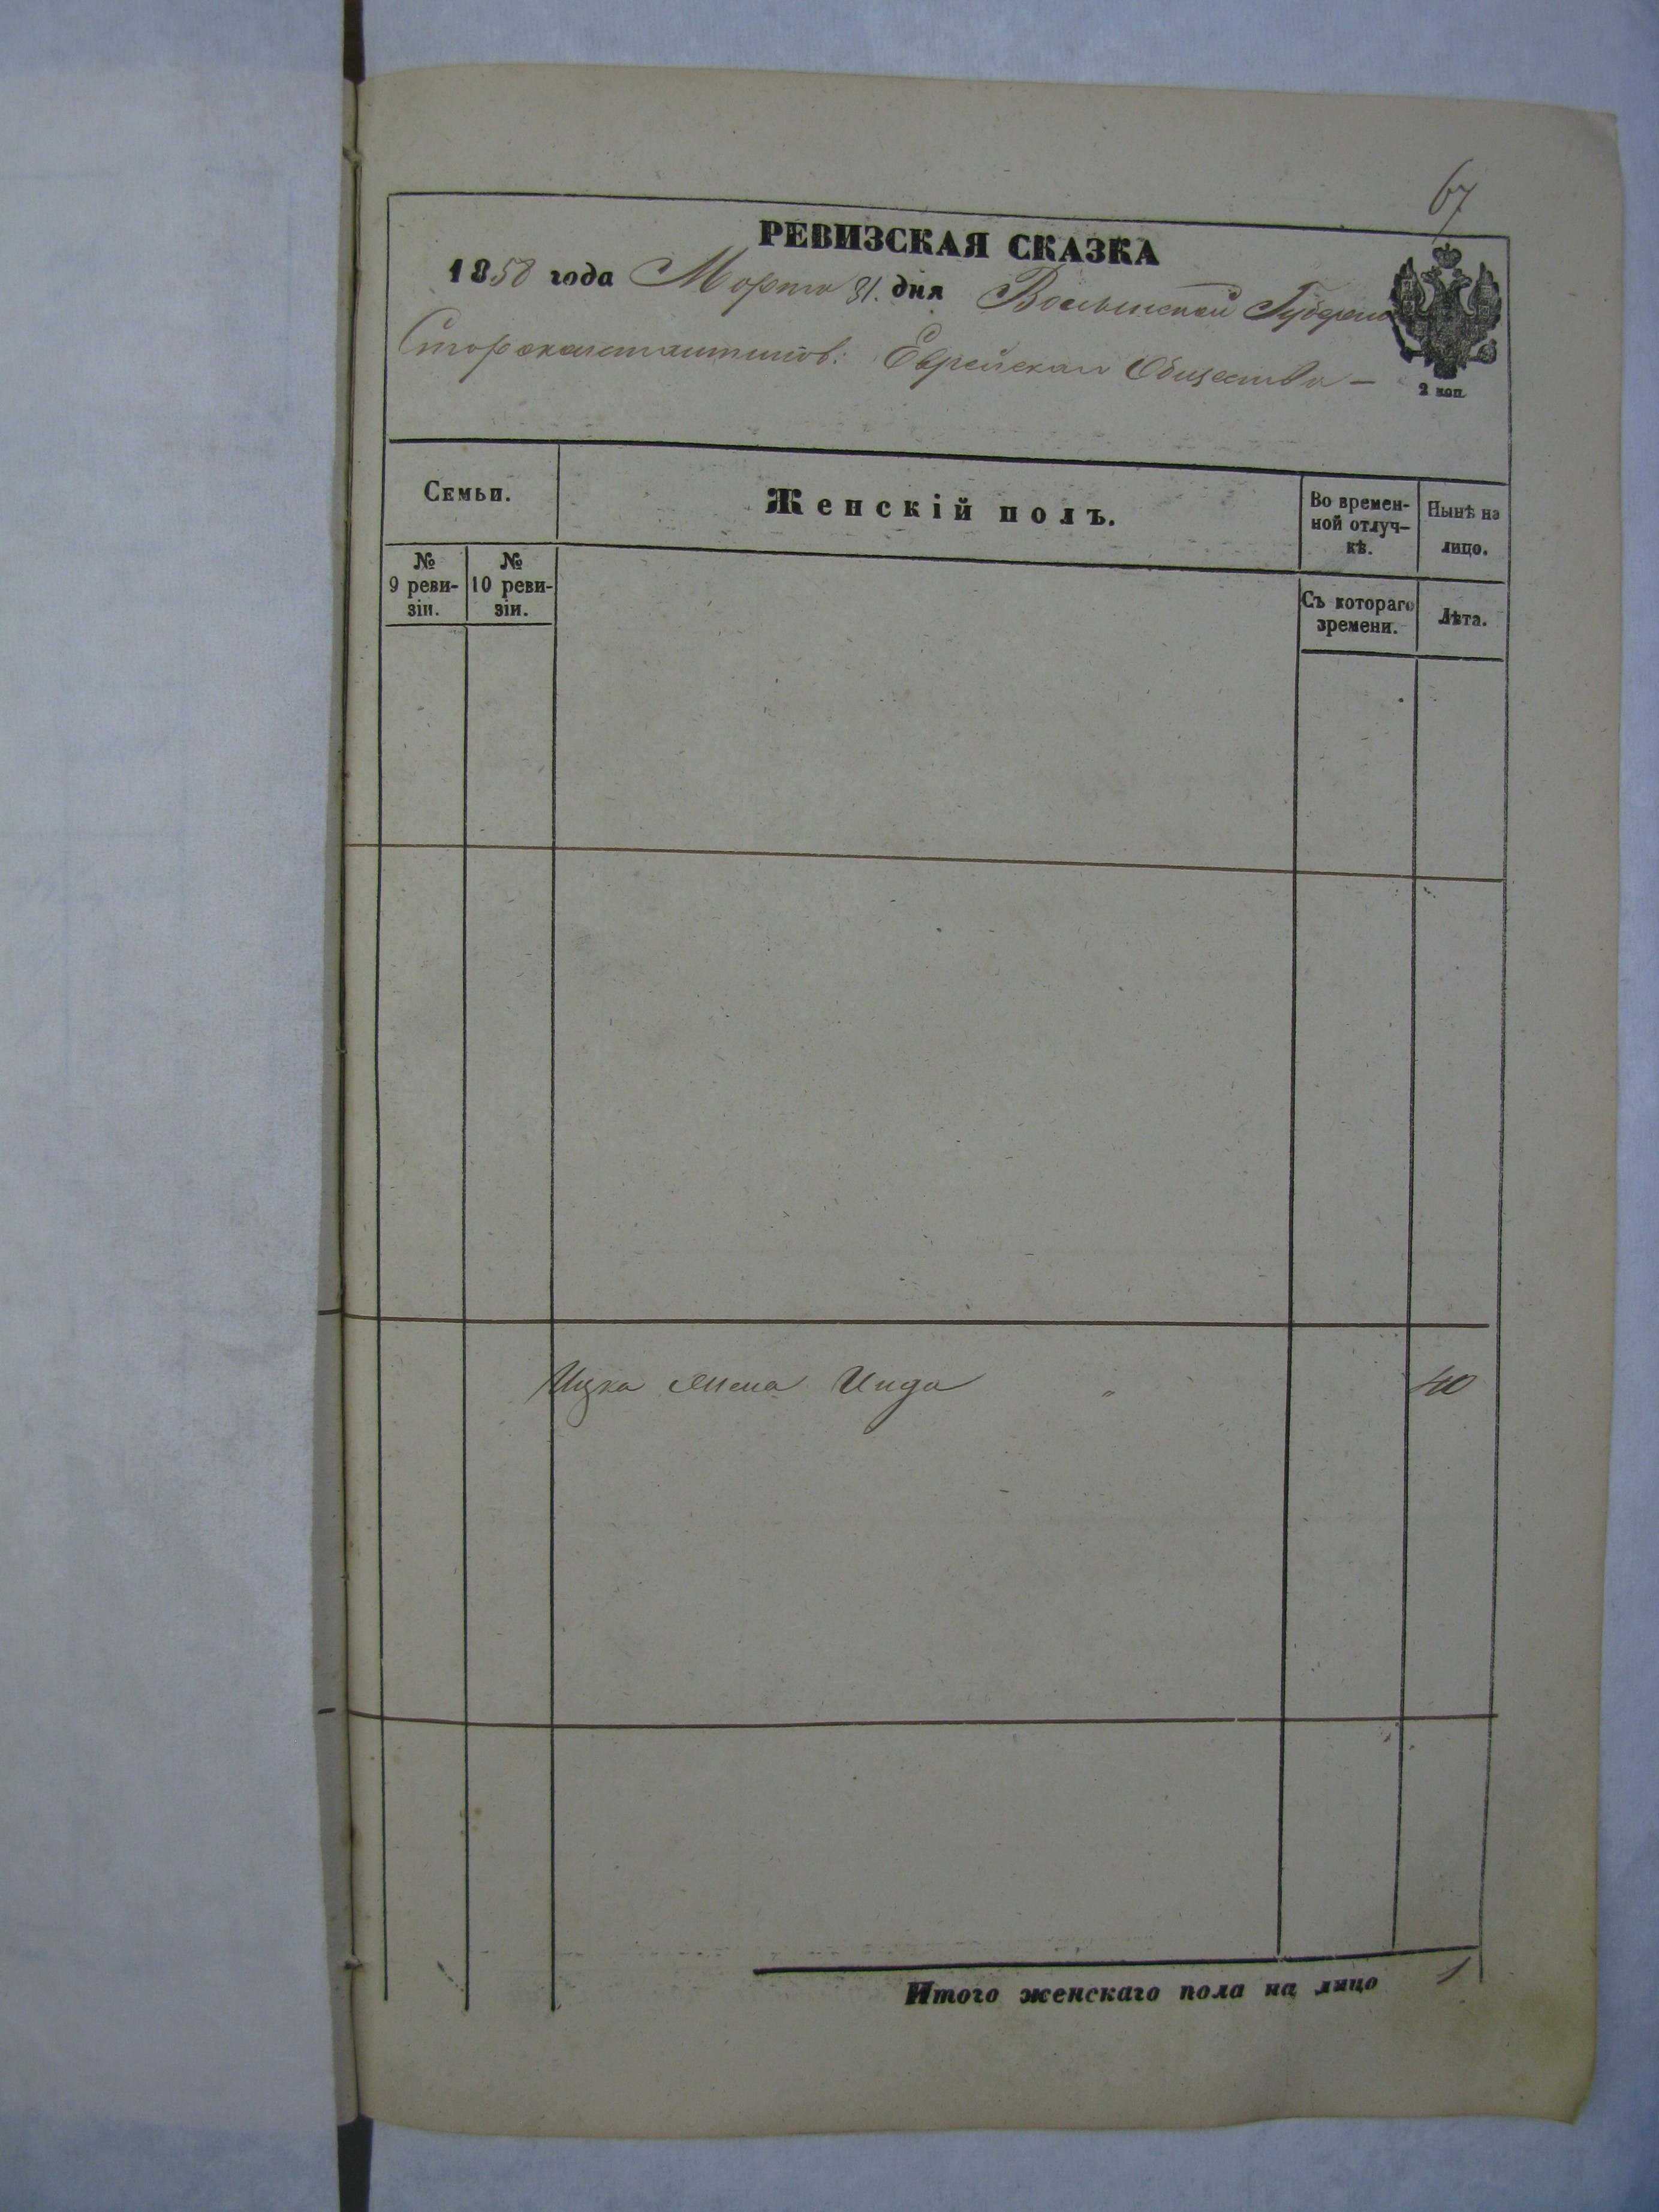 67
РЕВИЗСКАЯ СКАЗКА
1858 года Марта 31. дня Волынской Губерніи
Староконстантинов: Еврейскаго Общества —
2 коп.
Семьи.
Женскій полъ.
Во времен-
ной отлуч-
кѣ.
Нынѣ на
лицо.
№
9 реви-
зіи.
№
10 реви-
зіи.
Съ котораго
времени.
Лѣта.
Ицка жена Инда " 40
Итого женскаго пола на лицо 1